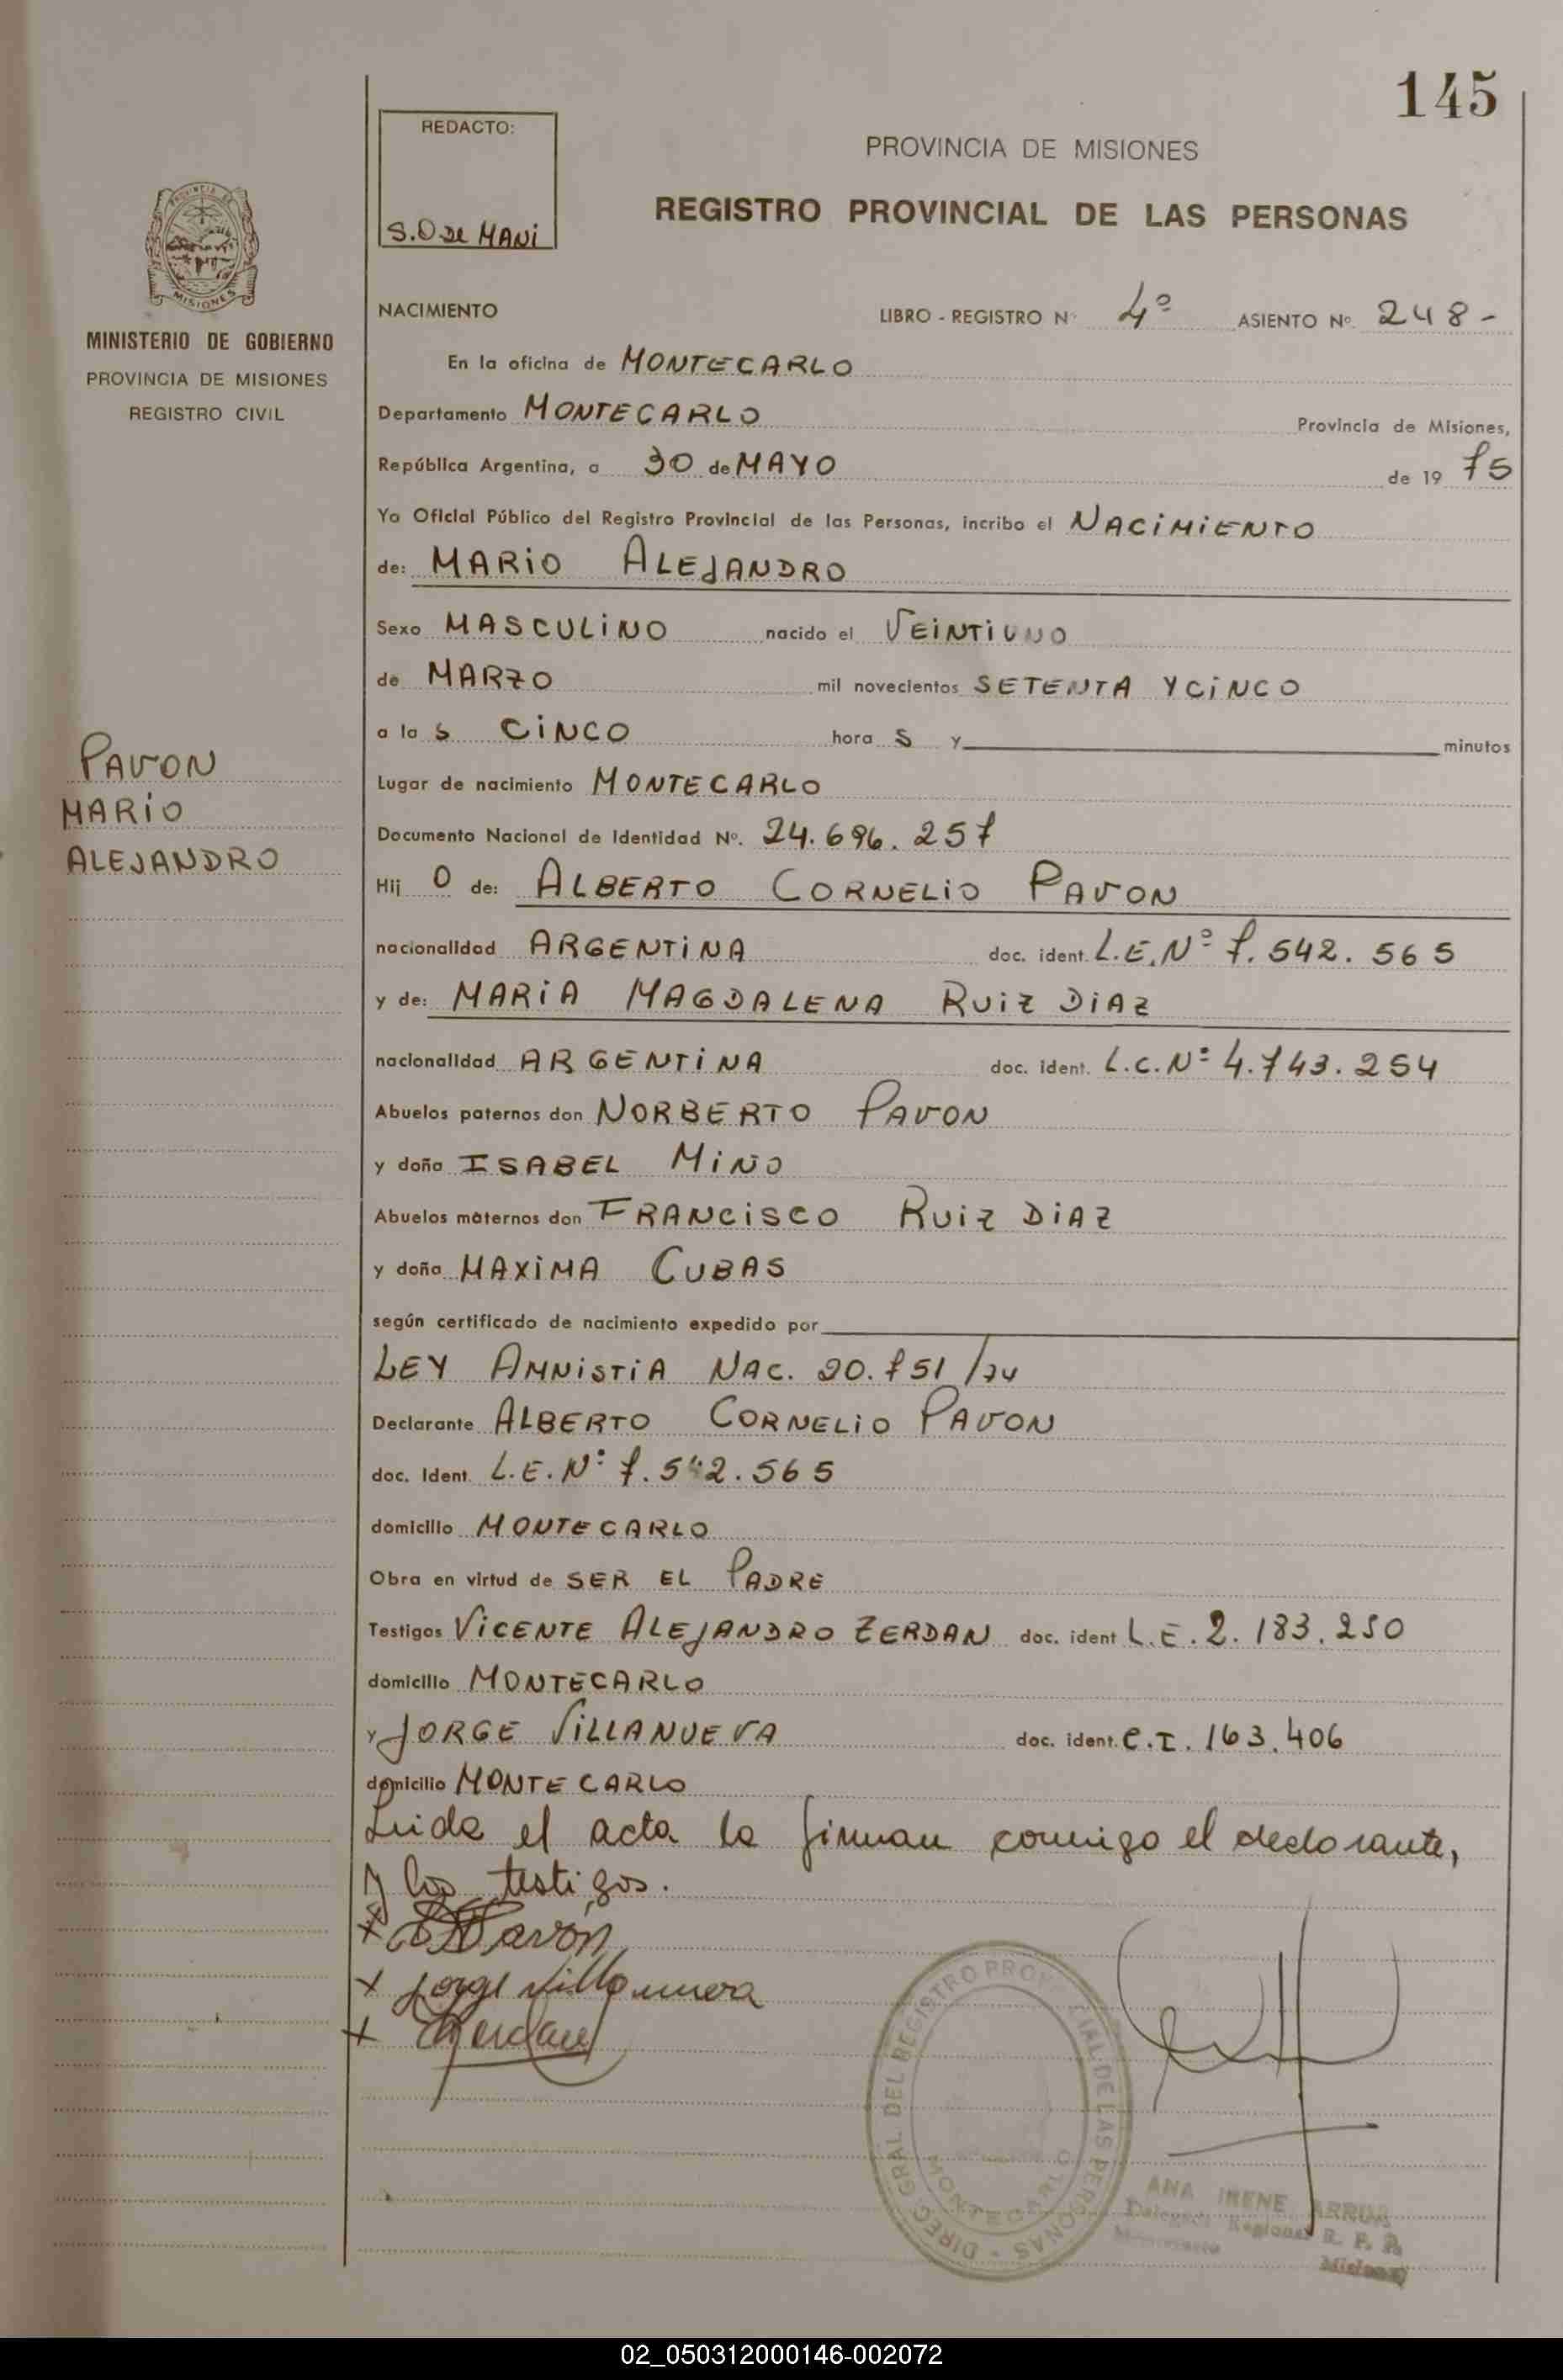 145
REDACTO:
S.D DE MANI
PROVINCIA DE MISIONES
REGISTRO PROVINCIAL DE LAS PERSONAS
PROVINCIA DE
MISIONES
MINISTERIO DE GOBIERNO
PROVINCIA DE MISIONES
REGISTRO CIVIL
NACIMIENTO LIBRO - REGISTRO Nº 4º ASIENTO Nº. 248-
En la oficina de MONTECARLO
Departamento MONTECARLO Provincia de Misiones,
República Argentina, a 30 de MAYO de 19 75
Yo Oficial Público del Registro Provincial de las Personas, incribo el NACIMIENTO
de: MARIO ALEJANDRO
Sexo MASCULINO nacido el VEINTIUNO
de MARZO mil novecientos SETENTA Y CINCO
a la s CINCO hora s y minutos
PAVON
MARIO
ALEJANDRO
Lugar de nacimiento MONTECARLO
Documento Nacional de Identidad Nº. 24.696.257
Hij O de: ALBERTO CORNELIO PAVON
nacionalidad ARGENTINA doc. ident. L.E.Nº 7.542.565
y de: MARIA MAGDALENA RUIZ DIAZ
nacionalidad ARGENTINA doc. ident. L.C.Nº 4.743.254
Abuelos paternos don NORBERTO PAVON
y doña ISABEL MIÑO
Abuelos maternos don FRANCISCO RUIZ DIAZ
y doña MAXIMA CUBAS
según certificado de nacimiento expedido por
LEY AMNISTIA NAC. 20.751/74
Declarante ALBERTO CORNELIO PAVON
doc. Ident. L.E.Nº 7.542.565
domicilio MONTECARLO
Obra en virtud de SER EL PADRE
Testigos VICENTE ALEJANDRO ZERDAN doc. ident L.E. 2.183.250
domicilio MONTECARLO
y JORGE VILLANUEVA doc. ident. C.I. 163.406
domicilio MONTECARLO
Leida el acta la firman conmigo el declarante,
y los testigos.
x Pavón
x Jorge Villanueva
x Zerdan
DIREC. GRAL DEL REGISTRO PROVINCIAL DE LAS PERSONAS
MONTECARLO
ANA IRENE
Delegada Regional R. P. P.
Misiones
02_050312000146-002072